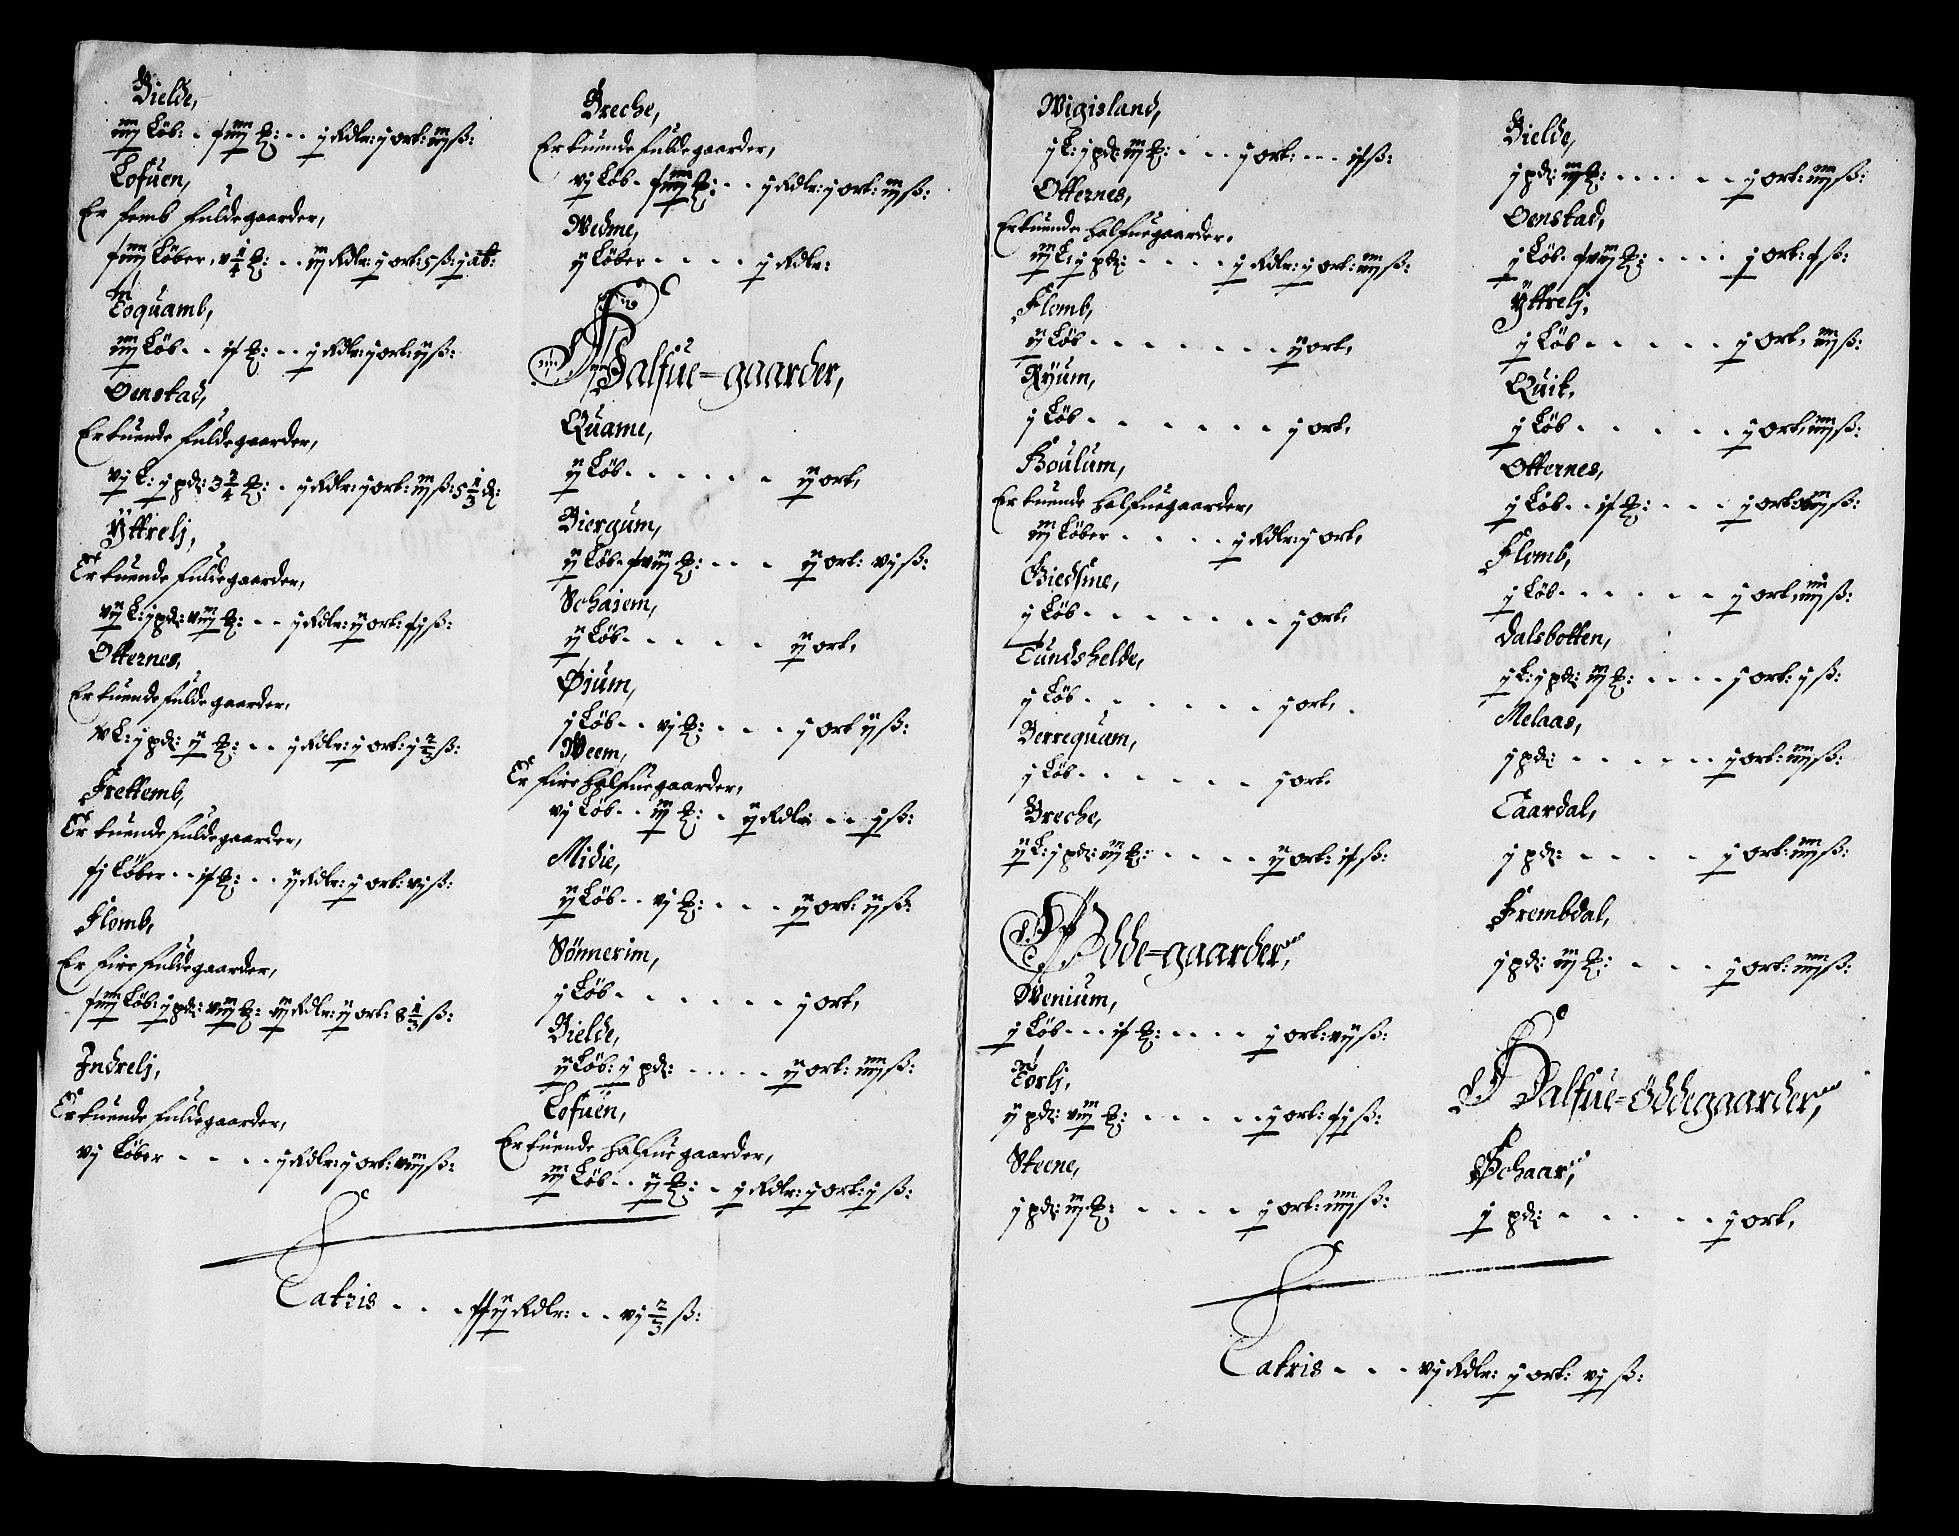 Bielde,
iiij Löb: . ſiiij ℔: . . j Rdlr: j ort: iiij ß:
Lofuen,
Er femb fuldegaarder,
ſiiij Löber, v 1/4 ℔: . . iij Rdlr: j ort: 5 ß: j alb:
Toquamb,
iiij Löb . . iſ ℔: . . j Rdlr: j ort: ij ß:
Oenstad,
Er tuende fuldegaarder,
vj L: j pd: 3 3/4 ℔: . j Rdlr: j ort: iij ß: 5 1/3 d:
Ÿttrelj,
Er tuende fuldegaarder,
vij L: j pd: viij ℔: . . j Rdlr: ij ort: ſj ß:
Otternes,
Er tuende fuldegaarder,
v L: j pd: ij ℔: . . j Rdlr: j ort: j 2/3 ß:
Frettemb,
Er tuende fuldegaarder,
ſj Löber . . iſ ℔: . . ij Rdlr: j ort: vj ß:
Flomb,
Er fire fuldegaarder,
ſiiij Löb: j pd: viij ℔: iij Rdlr: ij ort: 8 1/3 ß:
Indrelj,
Er tuende fuldegaarder,
vj Löber . . . . j Rdlr: j ort: viij ß:
Breche,
Er tuende fuldegaarder,
vj Löb . ſiiij ℔: . . j Rdlr: j ort: iiij ß:
Wedme,
ij Löber . . . . j Rdlr:
Halfue=gaarder,
Quame,
ij Löb . . . . . . ij ort,
Biergum,
ij Löb . ſviij ℔: . . . ij ort: vj ß:
Schaiem,
ij Löb . . . . . ij ort,
Øjum,
j Löb . . vj ℔: . . . j ort ij ß:
Weem,
Er fire halfuegaarder,
vj Löb . . iij ℔: . ij Rdlr: . . j ß:
Midie,
ij Löb . . vj ℔: . . . ij ort: ij ß:
Sönnerim,
j Löb . . . . . . j ort,
Bielde,
ij Löb: j pd: . . . . . ij ort: iiij ß:
Lofuen,
Er tuende halfue gaarder,
iij Löb . . ij ℔: . j Rdlr: j ort: j ß:
Latris . . . ſſij Rdlr: . . vj 2/3 ß:
Wigisland,
j L: j pd: iij ℔: . . . j ort: . . iſ ß:
Otternes,
Er tuende halfuegaarder,
iij L: j pd: . . . . j Rdlr: j ort: iiij ß:
Flomb,
ij Löb . . . . . . . ij ort,
Ryum,
j Löb . . . . . . j ort,
Houlum,
Er tuende halfuegaarder,
iij Löber . . . . j Rdlr: j ort,
Giedsme,
j Löb . . . . . . j ort,
Tundshelde,
j Löb . . . . . . j ort, .
Berrequam,
j Löb . . . . . . j ort.
Breche,
ij L: j pd: iij ℔: . . . . ij ort: iſ ß:
Ödde=gaarder,
Wenium,
j Löb . . . iſ ℔: . . . . j ort: vij ß:
Torlj,
ij pd: viij ℔: . . . . . j ort: ſj ß:
Steene,
j pd: iij ℔: . . . . j ort: iiij ß:
Bielde,
j pd: iij ℔: . . . . . j ort: iiij ß:
Oenstad,
j Löb . ſviij ℔: . . . . j ort: ſ ß:
Ÿttrelj,
j Löb . . . . . j ort, iiij ß:
Quit,
j Löb . . . . . j ort, iiij ß:
Otternes,
j Löb . . iſ ℔: . . . j ort: iiij ß:
Flomb,
j Löb . . . . . . j ort, iiij ß:
Dalsbotten,
j L: j pd: iij ℔: . . . . j ort: j ß:
Melaas,
j pd: . . . . . . j ort: iiij ß:
Taardal,
j pd: . . . . j ort: iiij ß:
Frembdal,
j pd: iij ℔: . . . j ort: iiij ß:
Halfue=Öddegaarder,
Schaar,
j pd: . . . . . j ort,
Latris . . . vj Rdlr: j ort: vj ß: